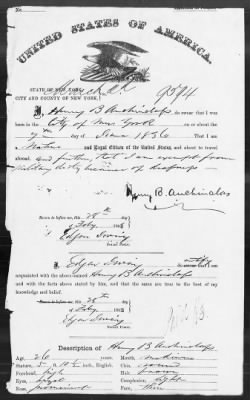 UNITED STATES OF AMERICA.
STATE OF NEW YORK,
CITY AND COUNTY OF NEW YORK,
9594
I, Henry B. Auchincloss do swear that I was
born in the City of New York on or about the
day of June 1836 That I am
a Native and Loyal Citizen of the United States, and about to travel
abroad. and further, that I am exempt from
military duty because of
Henry B. Auchincloss
Sworn to before me, this 28th
day of Feby 186
Notary Public.
I,
acquainted with the above-named Henry B Auchincloss
and with the facts above stated by him, and that the same are true to the best of my
knowledge and belief.
Sworn to before me, this 28th
day of Feby 186
Notary Public.
Description of Henry B Auchincloss
Age, 26 years
Stature, 5 10½ inches, English
Forehead, high
Eyes, hazel
Nose, prominent
Mouth, medium
Chin, round
Hair, brown
Complexion, light
Face, thin